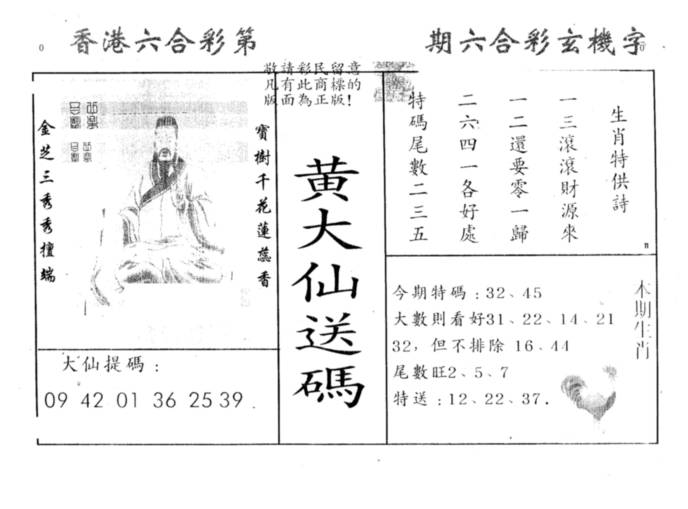 香港六合彩第
期六合彩玄機字
敬請彩民留意
凡有此商標的
版面為正版!
寶樹千花蓮蕊香
金芝三秀秀擅端
黃大仙送碼
生肖特供詩
一三滾滾財源來
一二還要零一歸
二六四一各好處
特碼尾數二三五
大仙提碼:
09 42 01 36 25 39
本期生肖
今期特碼:32、45
大數則看好31、22、14、21
32,但不排除 16、44
尾數旺2、5、7
特送:12、22、37.